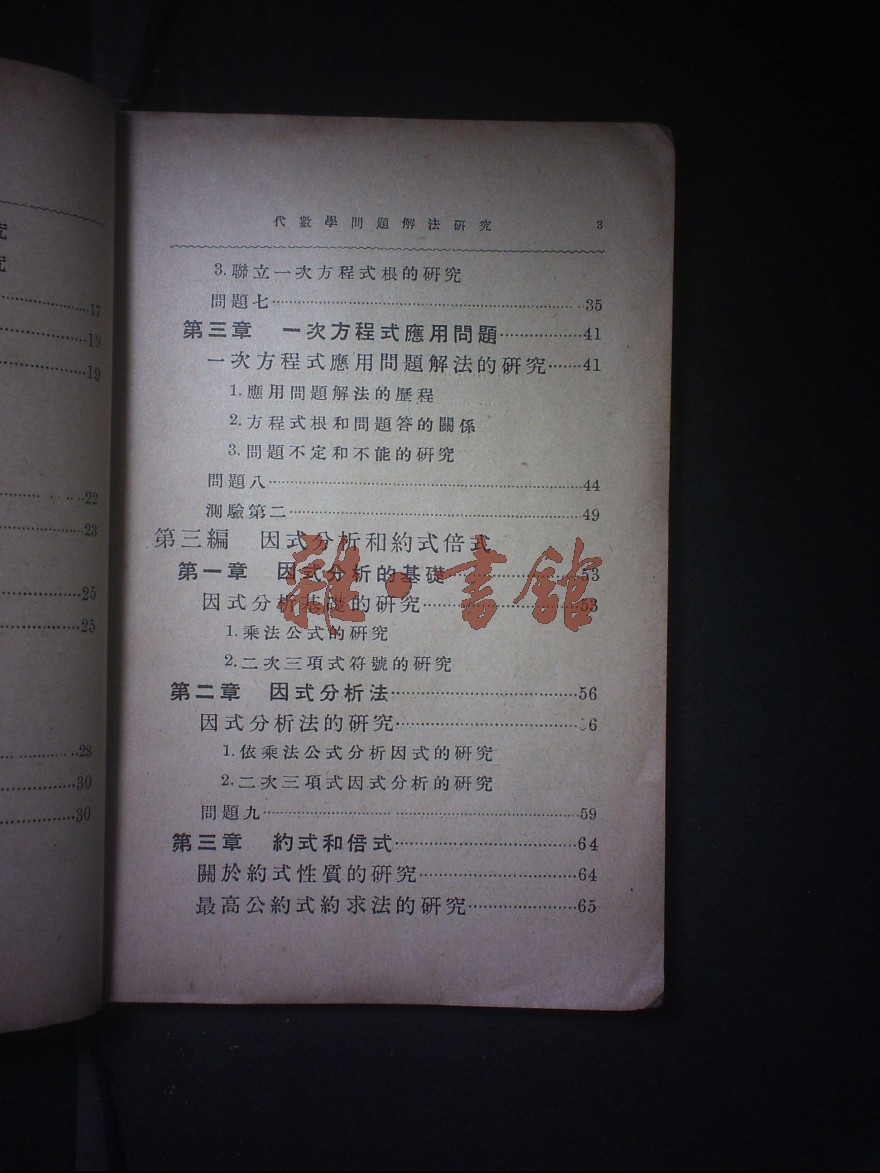 究
究
17
19
19
22
23
25
25
28
30
30
代數學問題解法研究 3
3.聯立一次方程式根的研究
問題七……35
第三章 一次方程式應用問題……41
一次方程式應用問題解法的研究……41
1.應用問題解法的歷程
2.方程式根和問題答的關係
3.問題不定和不能的研究
問題八……44
測驗第二……49
第三編 因式分析和約式倍式
第一章 因式分析的基礎……53
因式分析基礎的研究……53
1.乘法公式的研究
2.二次三項式符號的研究
第二章 因式分析法……56
因式分析法的研究……6
1.依乘法公式分析因式的研究
2.二次三項式因式分析的研究
問題九……59
第三章 約式和倍式……64
關於約式性質的研究……64
最高公約式約求法的研究……65
雜·書館